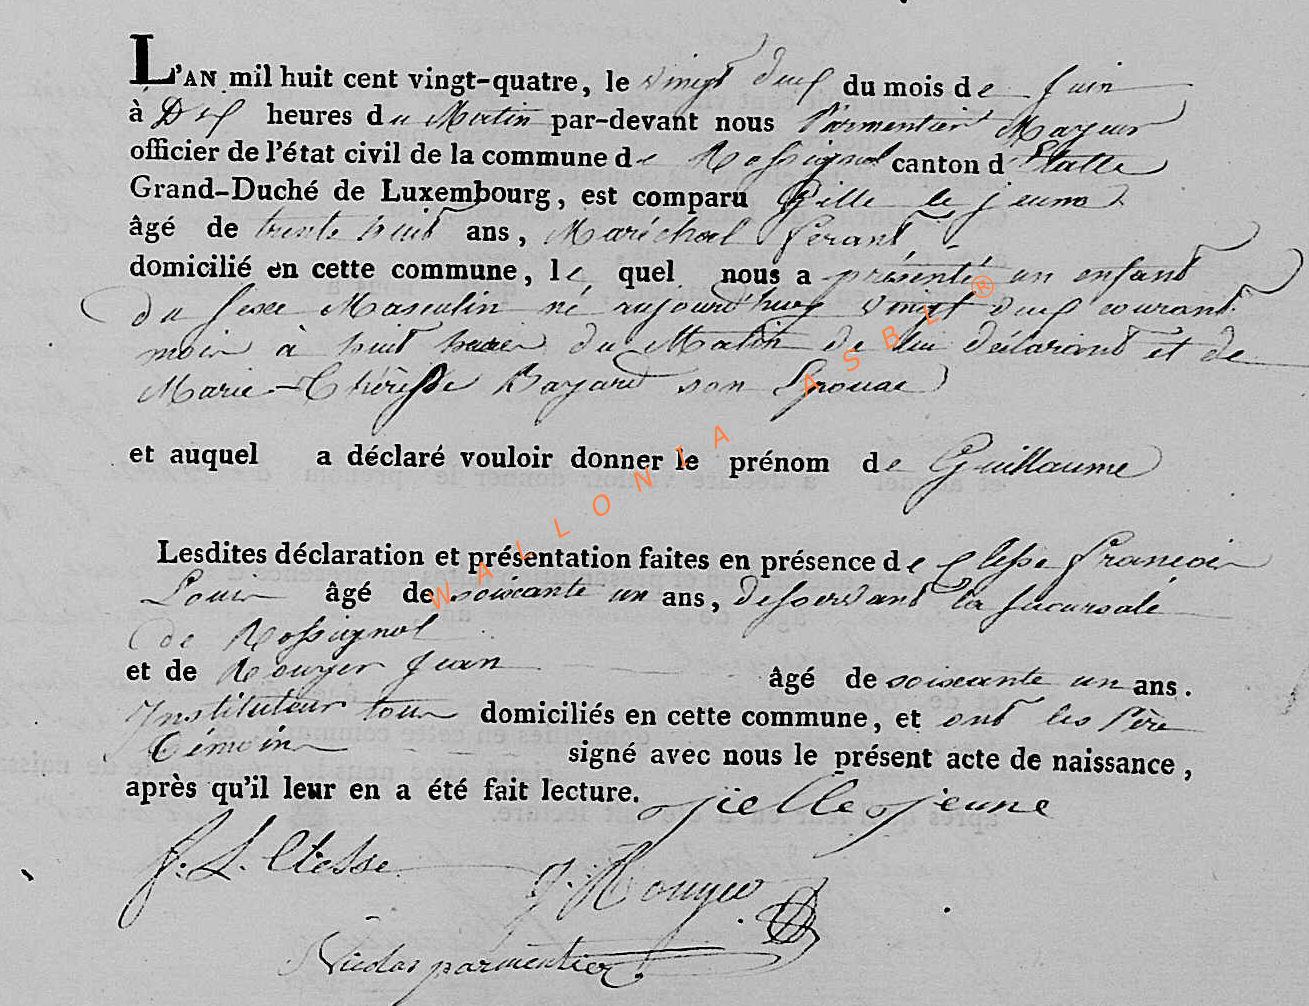 L'AN mil huit cent vingt-quatre, le vingt deux du mois de Juin
à Dix heures du Matin par-devant nous Parmentier Mayeur
officier de l'état civil de la commune de Rossignol canton d'Etalle
Grand-Duché de Luxembourg, est comparu Gille le jeune
âgé de trente huit ans, Maréchal ferant
domicilié en cette commune, le quel nous a présenté un enfant
du sexe Masculin né aujourd'huy vingt deux courant
mois à huit heures du Matin de lui déclarant et de
Marie-Thérèsse Bayard son Epouse
et auquel a déclaré vouloir donner le prénom de Guillaume
Lesdites déclaration et présentation faites en présence de Clesse francois
Louis âgé de soixante un ans, desservant la succursale
de Rossignol
et de Rouyer Jean âgé de soixante un ans.
Instituteur tous domiciliés en cette commune, et ont les Père
Témoins signé avec nous le présent acte de naissance,
après qu'il leur en a été fait lecture. jielle jeune
f. L. Clesse
J. Rouyer
Nicolas parmentier
WALLONIA ASBL ®